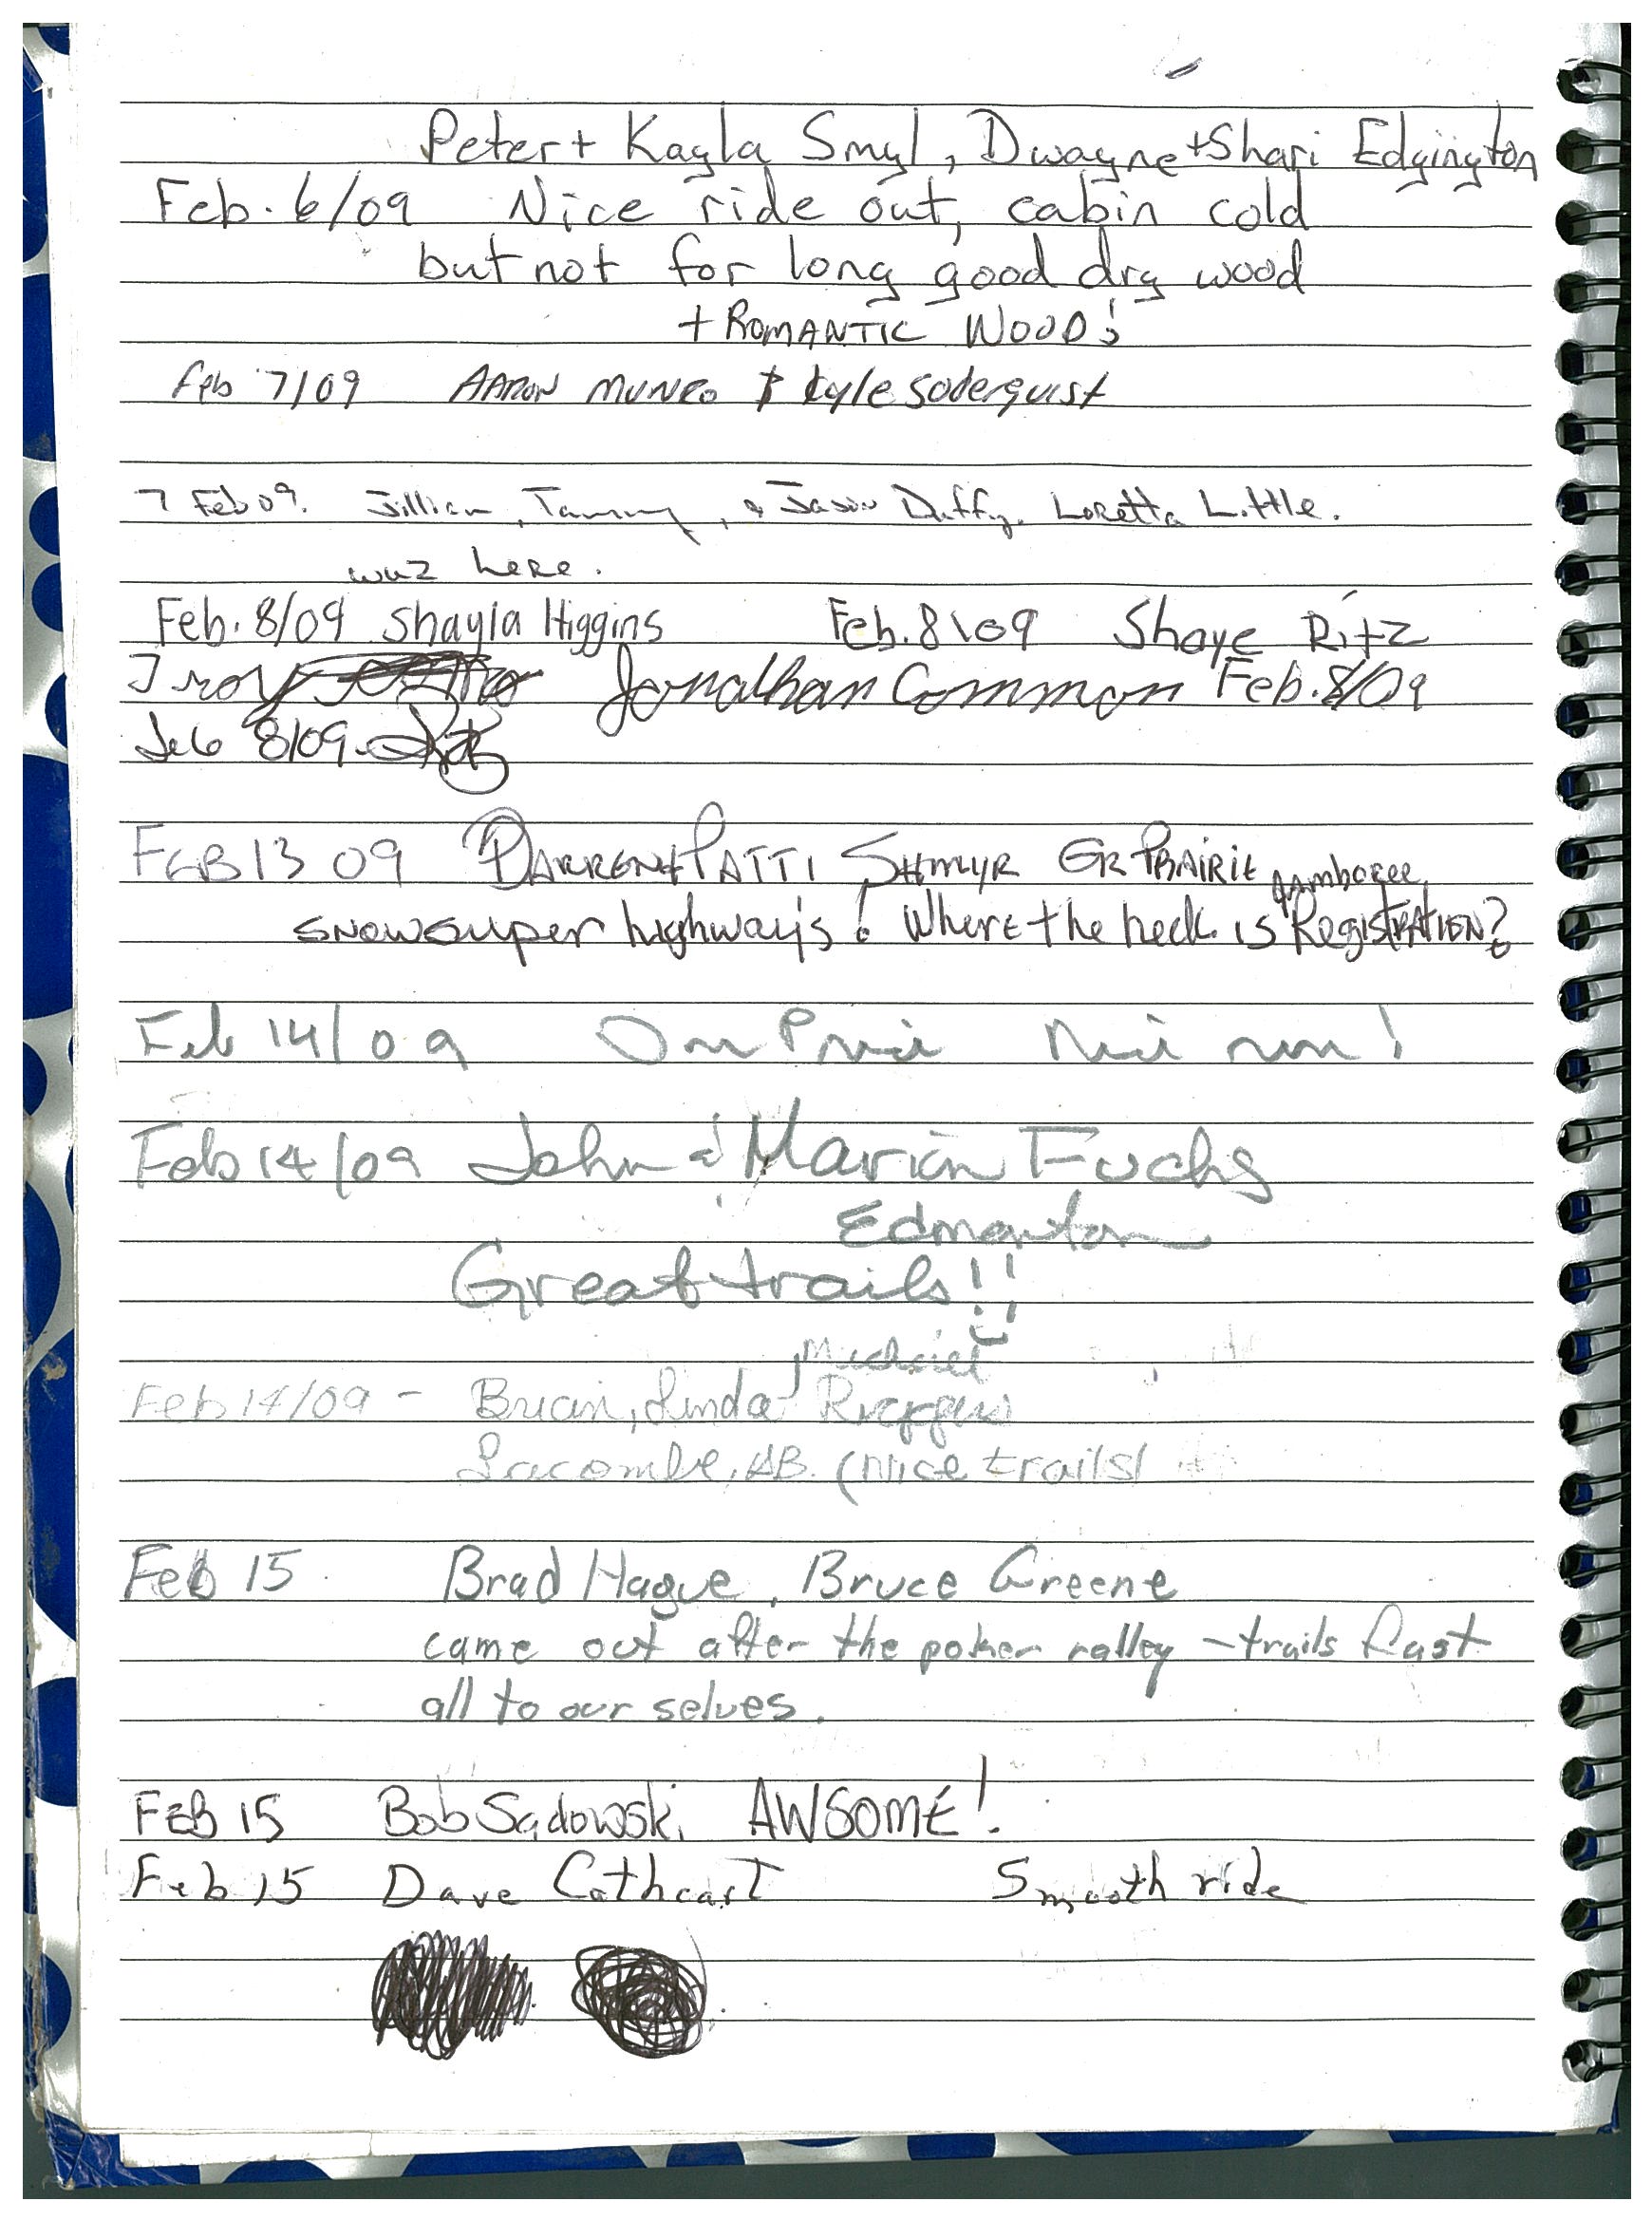 Peter + Kayla Smyl, Dwayne + Shari Edgington
Feb. 6/09 Nice ride out, cabin cold
but not for long good dry wood
+ ROMANTIC WOOD!
Feb 7/09 AARON MUNRO & Kyle Soderquist
7 Feb 09. Jillian, Tammy, & Jason Duffy. Loretta Little.
wuz here.
Feb. 8/09 Shayla Higgins Feb. 8\09 Shaye Ritz
Troy Jonathan Common Feb. 8/09
Feb 8/09
FEB 13 09 DARREN + PATTI SHMYR GR PRAIRIE
Jamboree
SNOW super highway's! Where the heck is Registration?
Feb 14/09 Nice run!
Feb 14/09 John & Marion Fuchs
Edmonton
Great trails!!
Michael
Feb 14/09 - Brian, Linda,
Lacombe, AB. (Nice trails)
Feb 15 Brad Hague, Bruce Greene
came out after the poker ralley - trails fast
all to our selves.
FEB 15 Bob Sadowski AWSOME!
Feb 15 Dave Cathcart Smooth ride